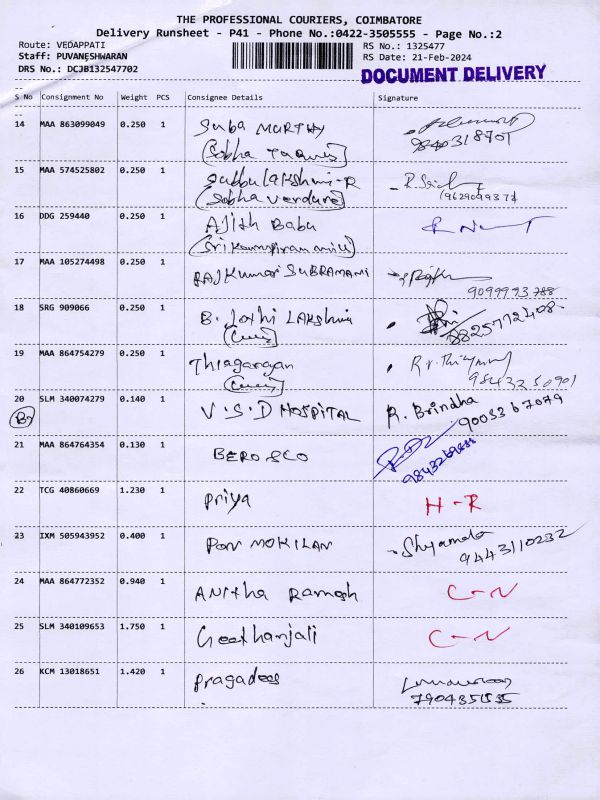 THE PROFESSIONAL COURIERS, COIMBATORE
Delivery Runsheet - P41 - Phone No.:0422-3505555 - Page No.:2
Route: VEDAPPATI RS No.: 1325477
Staff: PUVANESHWARAN RS Date: 21-Feb-2024
DRS No.: DCJB132547702
DOCUMENT DELIVERY
S No Consignment No Weight PCS Consignee Details Signature
14 MAA 863099049 0.250 1 Suba MURTHY
9840318701
(Sobha
15 MAA 574525802 0.250 1 Subbulakshmi-R
(Sobha verdure)
16 DDG 259440 0.250 1 Ajith Babu
17 MAA 105274498 0.250 1 RAJKumar SUBRAMANI
9099993788
18 SRG 909066 0.250 1 B. Jothi LAKshmi
8825772408
19 MAA 864754279 0.250 1 Thiagarayan
9843250901
20 SLM 340074279 0.140 1 V.S.D HOSPITAL R. Brindha
9003367079
21 MAA 864764354 0.130 1
22 TCG 40860669 1.230 1 Priya H-R
23 IXM 505943952 0.400 1 PON MOKILAN Shyamala
9443110232
24 MAA 864772352 0.940 1 ANitha Ramesh C-N
25 SLM 340109653 1.750 1 Geethanjali C-N
26 KCM 13018651 1.420 1 Pragadees